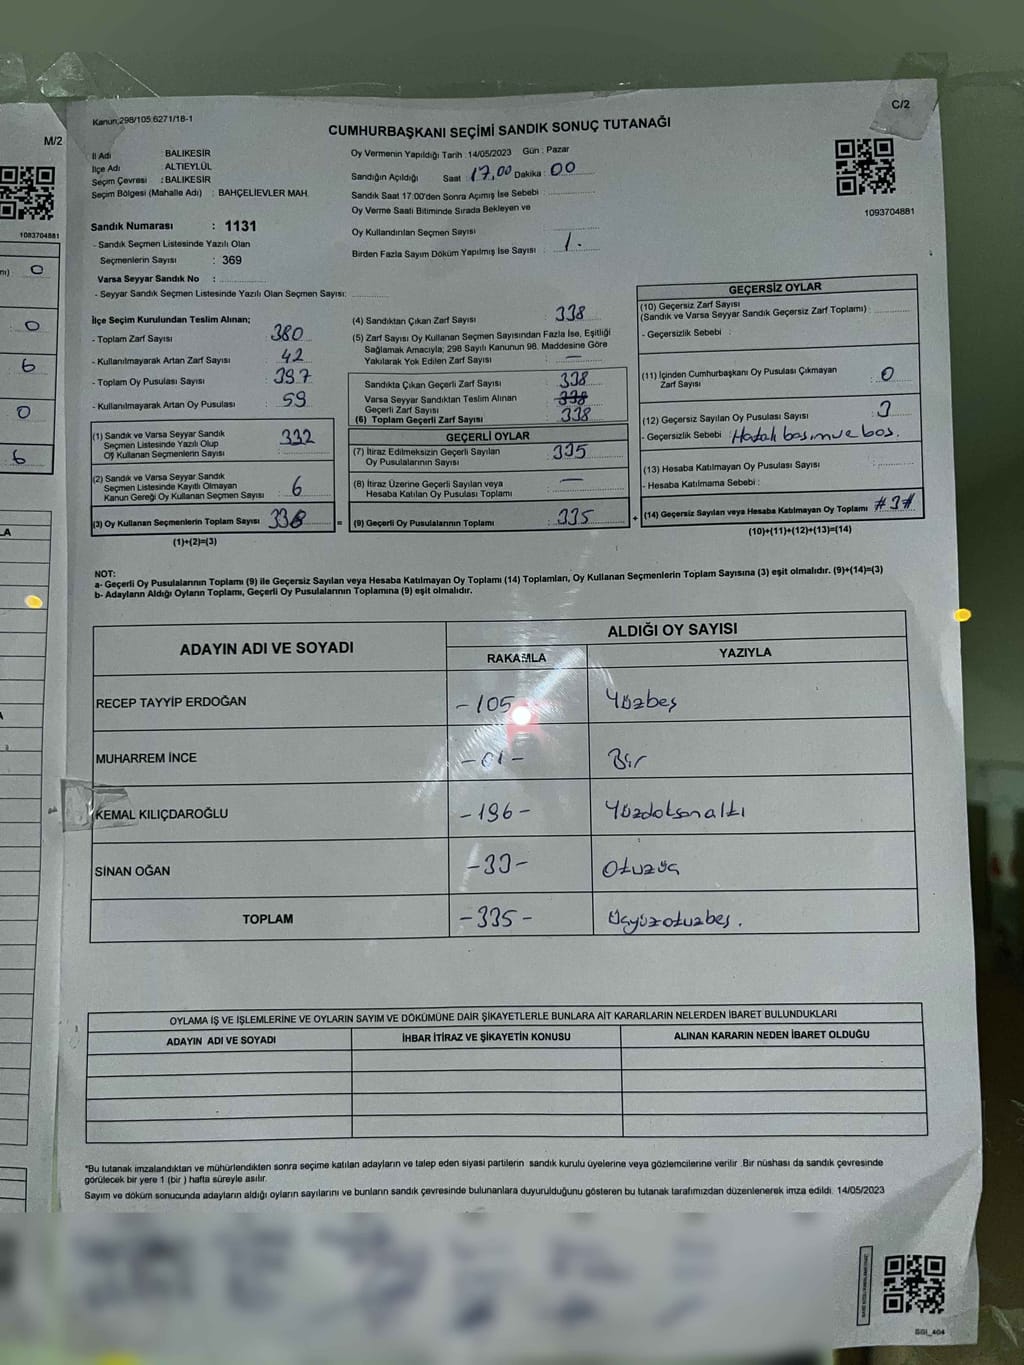 Kanun;298/105;6271/18-1
C/2
M/2
CUMHURBAŞKANI SEÇİMİ SANDIK SONUÇ TUTANAĞI
İl Adı : BALIKESİR
İlçe Adı : ALTIEYLÜL
Seçim Çevresi : BALIKESİR
Seçim Bölgesi (Mahalle Adı) : BAHÇELİEVLER MAH.
Oy Vermenin Yapıldığı Tarih : 14/05/2023 Gün : Pazar
Sandığın Açıldığı Saat : 17,00 Dakika : 00
Sandık Saat 17:00'den Sonra Açımış İse Sebebi :
Oy Verme Saati Bitiminde Sırada Bekleyen ve
Oy Kullandırılan Seçmen Sayısı :
Birden Fazla Sayım Döküm Yapılmış İse Sayısı : 1.
1093704881
1093704881
Sandık Numarası : 1131
- Sandık Seçmen Listesinde Yazılı Olan
Seçmenlerin Sayısı : 369
Varsa Seyyar Sandık No :
- Seyyar Sandık Seçmen Listesinde Yazılı Olan Seçmen Sayısı:
İlçe Seçim Kurulundan Teslim Alınan;
- Toplam Zarf Sayısı : 380
- Kullanılmayarak Artan Zarf Sayısı : 42
- Toplam Oy Pusulası Sayısı : 397
- Kullanılmayarak Artan Oy Pusulası : 59
(1) Sandık ve Varsa Seyyar Sandık
Seçmen Listesinde Yazılı Olup
Oy Kullanan Seçmenlerin Sayısı : 332
(2) Sandık ve Varsa Seyyar Sandık
Seçmen Listesinde Kayıtlı Olmayan
Kanun Gereği Oy Kullanan Seçmen Sayısı : 6
(3) Oy Kullanan Seçmenlerin Toplam Sayısı : 338
(1)+(2)=(3)
(4) Sandıktan Çıkan Zarf Sayısı : 338
(5) Zarf Sayısı Oy Kullanan Seçmen Sayısından Fazla İse, Eşitliği
Sağlamak Amacıyla; 298 Sayılı Kanunun 98. Maddesine Göre
Yakılarak Yok Edilen Zarf Sayısı : —
Sandıkta Çıkan Geçerli Zarf Sayısı : 338
Varsa Seyyar Sandıktan Teslim Alınan
Geçerli Zarf Sayısı : 338
(6) Toplam Geçerli Zarf Sayısı : 338
GEÇERLİ OYLAR
(7) İtiraz Edilmeksizin Geçerli Sayılan
Oy Pusulalarının Sayısı : 335
(8) İtiraz Üzerine Geçerli Sayılan veya
Hesaba Katılan Oy Pusulası Toplamı : —
= (9) Geçerli Oy Pusulalarının Toplamı : 335
GEÇERSİZ OYLAR
(10) Geçersiz Zarf Sayısı
(Sandık ve Varsa Seyyar Sandık Geçersiz Zarf Toplamı) :
- Geçersizlik Sebebi :
(11) İçinden Cumhurbaşkanı Oy Pusulası Çıkmayan
Zarf Sayısı : 0
(12) Geçersiz Sayılan Oy Pusulası Sayısı : 3
- Geçersizlik Sebebi : Hatalı basım ve boş.
(13) Hesaba Katılmayan Oy Pusulası Sayısı :
- Hesaba Katılmama Sebebi :
+ (14) Geçersiz Sayılan veya Hesaba Katılmayan Oy Toplamı : #3#
(10)+(11)+(12)+(13)=(14)
NOT:
a- Geçerli Oy Pusulalarının Toplamı (9) ile Geçersiz Sayılan veya Hesaba Katılmayan Oy Toplamı (14) Toplamları, Oy Kullanan Seçmenlerin Toplam Sayısına (3) eşit olmalıdır. (9)+(14)=(3)
b- Adayların Aldığı Oyların Toplamı, Geçerli Oy Pusulalarının Toplamına (9) eşit olmalıdır.
ADAYIN ADI VE SOYADI
ALDIĞI OY SAYISI
RAKAMLA YAZIYLA
RECEP TAYYİP ERDOĞAN -105 Yüzbeş
MUHARREM İNCE -01- Bir
KEMAL KILIÇDAROĞLU -196- Yüzdoksanaltı
SİNAN OĞAN -33- Otuzüç
TOPLAM -335- Üçyüzotuzbeş.
OYLAMA İŞ VE İŞLEMLERİNE VE OYLARIN SAYIM VE DÖKÜMÜNE DAİR ŞİKAYETLERLE BUNLARA AİT KARARLARIN NELERDEN İBARET BULUNDUKLARI
ADAYIN ADI VE SOYADI İHBAR İTİRAZ VE ŞİKAYETİN KONUSU ALINAN KARARIN NEDEN İBARET OLDUĞU
*Bu tutanak imzalandıktan ve mühürlendikten sonra seçime katılan adayların ve talep eden siyasi partilerin sandık kurulu üyelerine veya gözlemcilerine verilir .Bir nüshası da sandık çevresinde
görülecek bir yere 1 (bir ) hafta süreyle asılır.
Sayım ve döküm sonucunda adayların aldığı oyların sayılarını ve bunların sandık çevresinde bulunanlara duyurulduğunu gösteren bu tutanak tarafımızdan düzenlenerek imza edildi. 14/05/2023
0
0
6
0
6
SGI_404